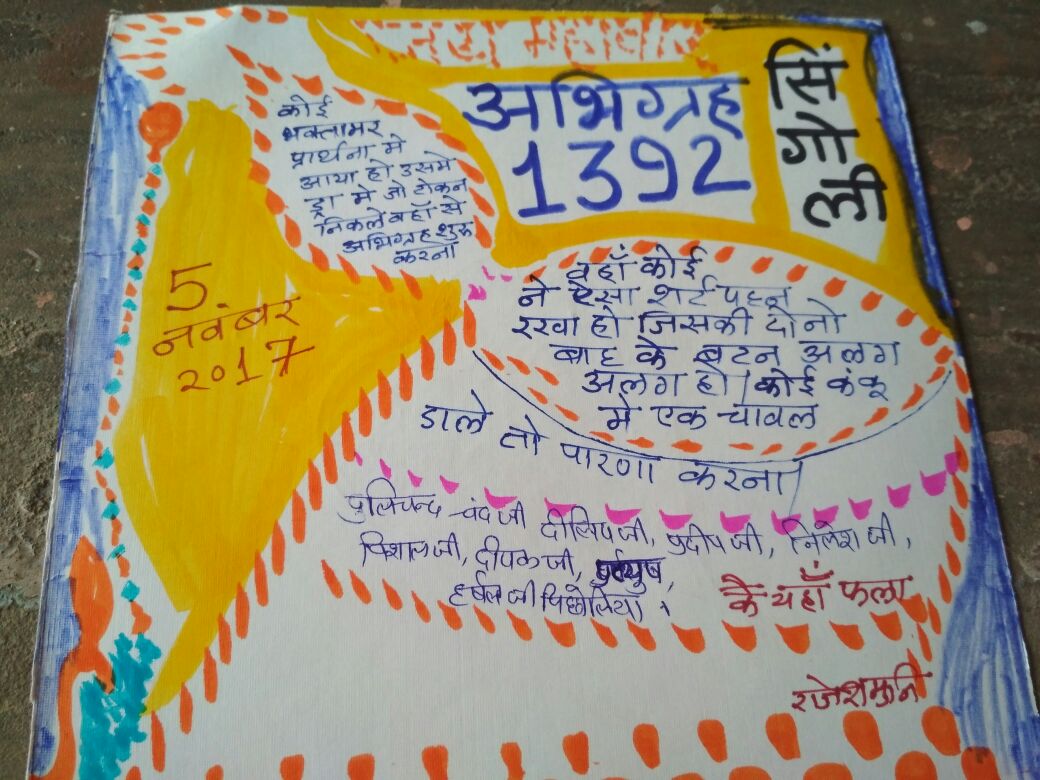 जय महावीर
अभिग्रह
1392
सिंगोली
कोई
भक्तामर
प्रार्थना मे
आया हो उसमे
ड्रा मे जो टोकन
निकले वहाँ से
अभिग्रह शुरू
करना
5.
नवंबर
2017
वहाँ कोई
ने ऐसा शर्ट पहन
रखा हो जिसकी दोनो
बाह के बटन अलग
अलग हो। कोई कंकू
मे एक चावल
डाले तो पारणा करना।
चंदजी दीलिपजी, प्रदीपजी, निलेशजी,
विशालजी, दीपकजी,
हर्षलजी पिछोलिया।
कै यहाँ फला
राजेशमुनि